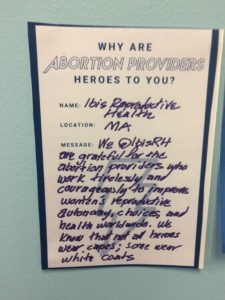 WHY ARE
ABORTION PROVIDERS
HEROES TO YOU?
NAME: Ibis Reproductive
Health
LOCATION: MA
MESSAGE: We @IbisRH
are grateful for the
abortion providers who
work tirelessly and
courageously to improve
women's reproductive
autonomy, choices, and
health worldwide. We
know that not all heroes
wear capes; some wear
white coats